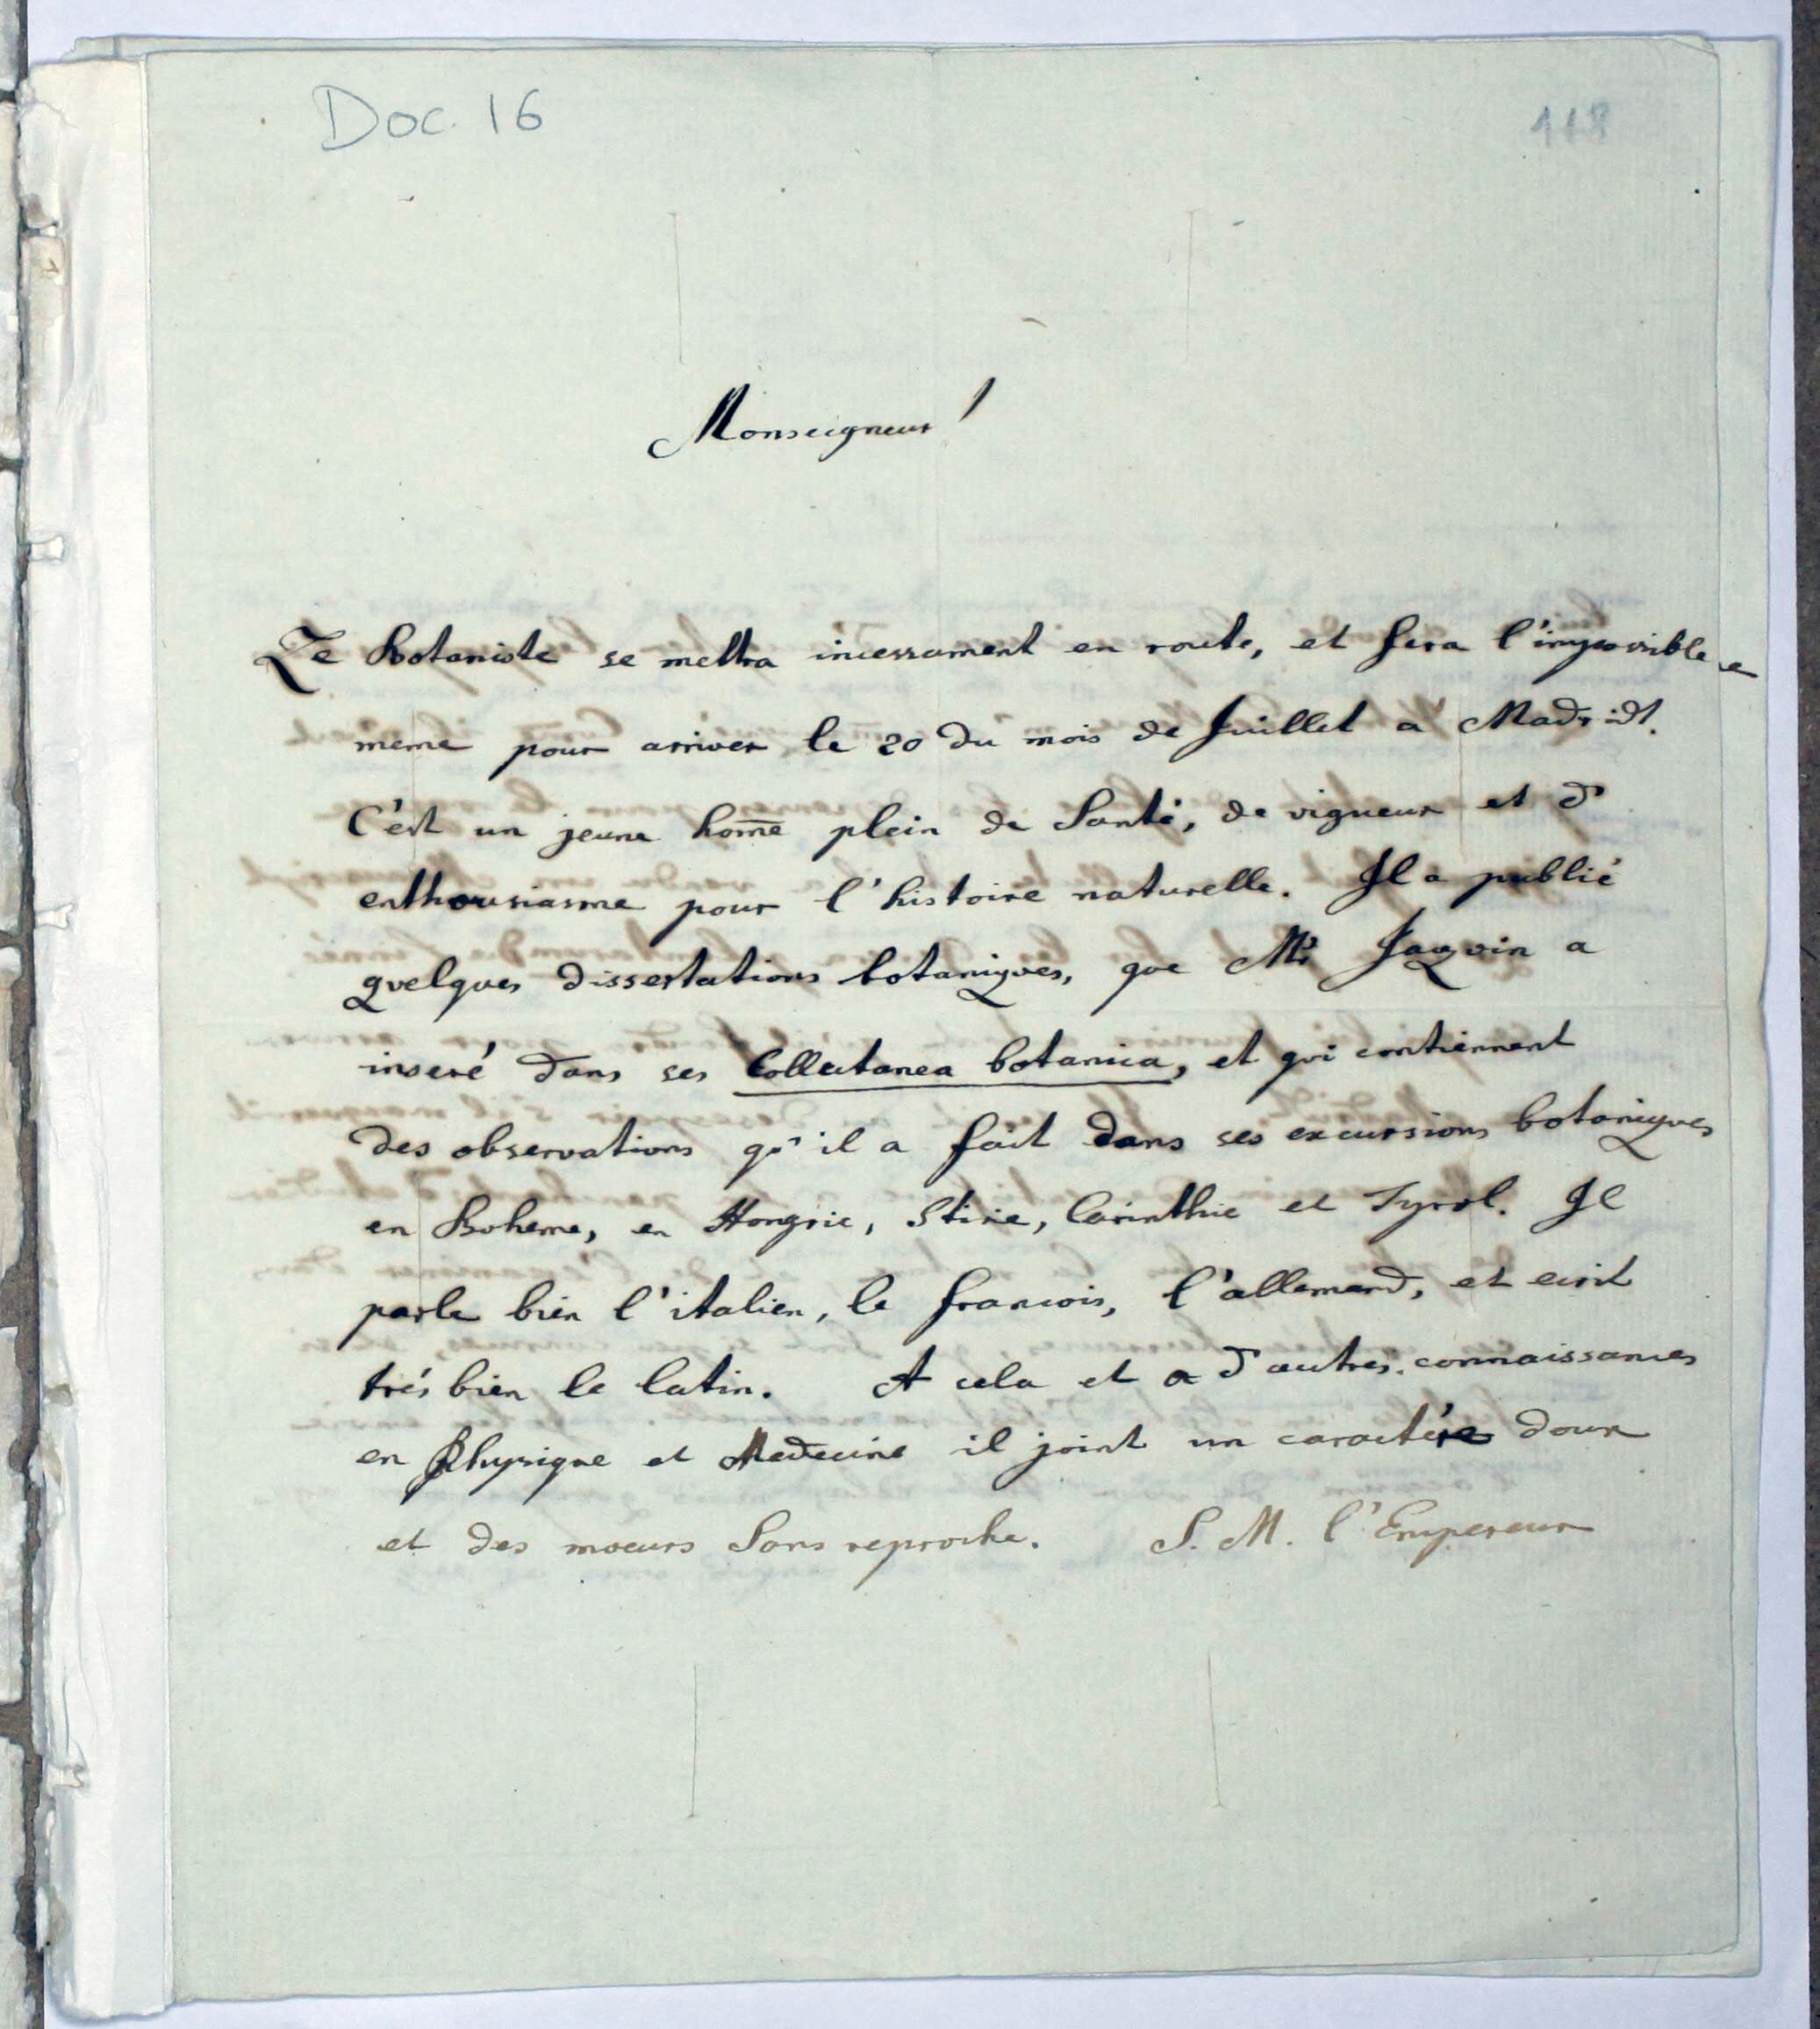 Doc. 16
118
Monseigneur!
Le Botaniste se mettra incessament en route, et fera l'impossible
meme pour arriver le 20 du mois de Juillet a Madrid.
C'est un jeune hom̄e plein de Santé, de vigueur et d'
enthousiasme pour l'histoire naturelle. Il a publié
quelques dissertations botaniques, que Mr Jaquin a
inseré dans ses Collectanea botanica, et qui contiennent
des observations qu'il a fait dans ses excursions botaniques
en Boheme, en Hongrie, Stirie, Carinthie et Tyrol. Il
parle bien l'italien, le francois, l'allemand, et ecrit
trés bien le latin. A cela et a d'autres connaissances
en Physique et Medecine il joint un caractére doux
et des moeurs Sans reproche. S. M. l'Empereur